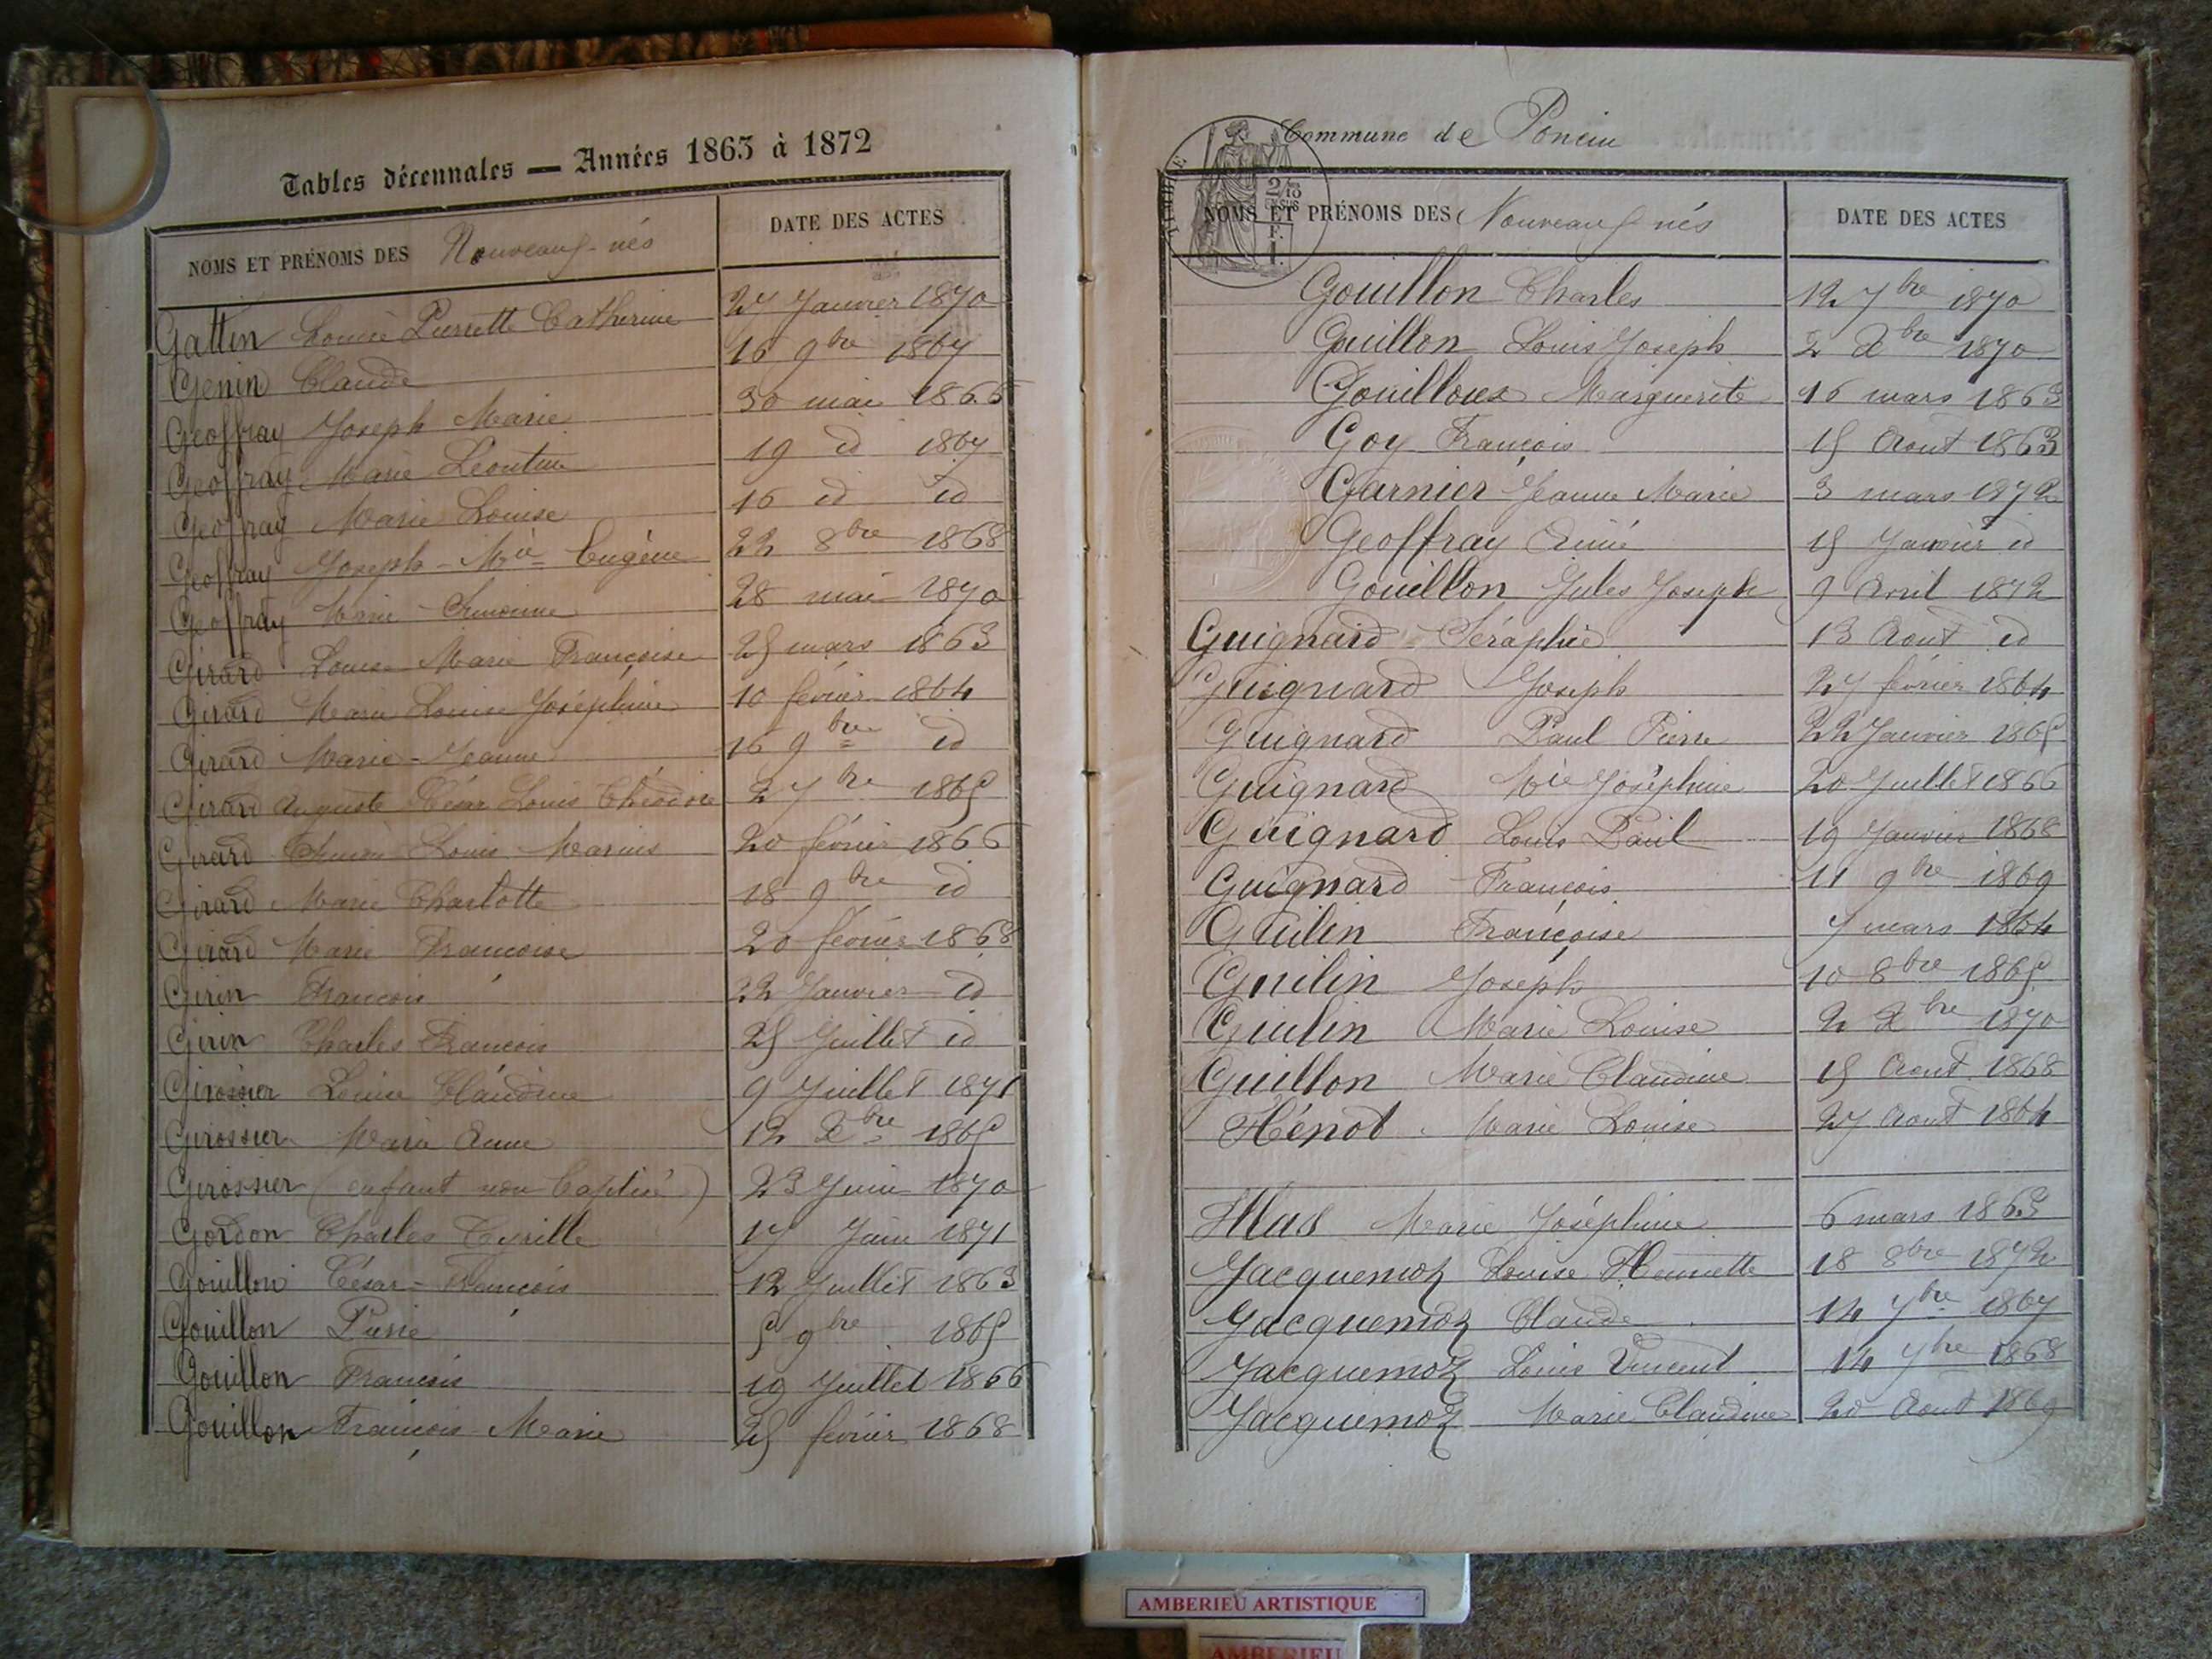 Tables décennales — Années 1863 à 1872
NOMS ET PRÉNOMS DES Nouveaux-nés DATE DES ACTES
Gattin Louise Pierrette Catherine 27 Janvier 1870
Genin Claude 16 9bre 1867
Geoffray Joseph Marie 30 mai 1866
Geoffray Marie Léontine 19 id 1867
Geoffray Marie Louise 16 id id
Geoffray Joseph-Mie Eugène 22 8bre 1868
Geoffray Marie 28 mai 1870
Girard Louise Marie Françoise 25 mars 1863
Girard Marie Louise Joséphine 10 février 1864
Girard Marie-Jeanne 16 9bre id
Girard Auguste César Louis Théodore 2 7bre 1865
Girard Louis Marius 20 février 1866
Girard Marie Charlotte 18 9bre id
Girard Marie Françoise 20 février 1868
Girin François 22 Janvier id
Girin Charles François 25 Juillet id
Girossier Louise Claudine 9 Juillet 1871
Girossier Marie Anne 12 Xbre 1865
Girossier (enfant non baptisé) 23 Juin 1870
Gordon Charles Cyrille 17 Juin 1871
Gouillon César-François 12 Juillet 1863
Gouillon Pierre 5 9bre 1865
Gouillon François 19 Juillet 1866
Gouillon François Marie 25 février 1868
Commune de Poncin
2/10 EN SUS
F.
1.
NOMS ET PRÉNOMS DES Nouveaux nés DATE DES ACTES
Gouillon Charles 12 7bre 1870
Gouillon Louis Joseph 2 Xbre 1870
Gouilloux Marguerite 16 mars 1863
Goy François 15 Aout 1863
Garnier Jeanne Marie 3 mars 1872
Geoffray Aimé 15 Janvier id
Gouillon Jules Joseph 9 Avril 1872
Guignard Séraphie 13 Aout id
Guignard Joseph 27 février 1864
Guignard Paul Pierre 22 Janvier 1865
Guignard Mie Joséphine 20 Juillet 1866
Guignard Louis Paul 19 Janvier 1868
Guignard François 11 9bre 1869
Guilin Françoise 7 mars 1864
Guilin Joseph 10 8bre 1865
Guilin Marie Louise 2 Xbre 1870
Guillon Marie Claudine 15 Aout 1868
Hénot Marie Louise 27 Aout 1864
Marie Joséphine 6 mars 1863
Jacquemoz Louise Henriette 18 8bre 1872
Jacquemoz Claude 14 7bre 1867
Jacquemoz Louis Vincent 14 7bre 1868
Jacquemoz Marie Claudine 20 Aout 1869
AMBERIEU ARTISTIQUE
AMBERIEU